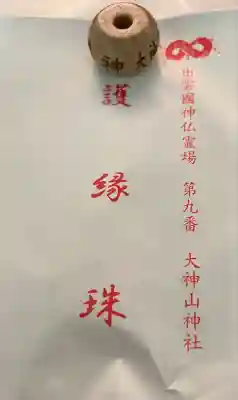 出雲國神仏霊場　第九番　大神山神社
護縁珠
神 大神